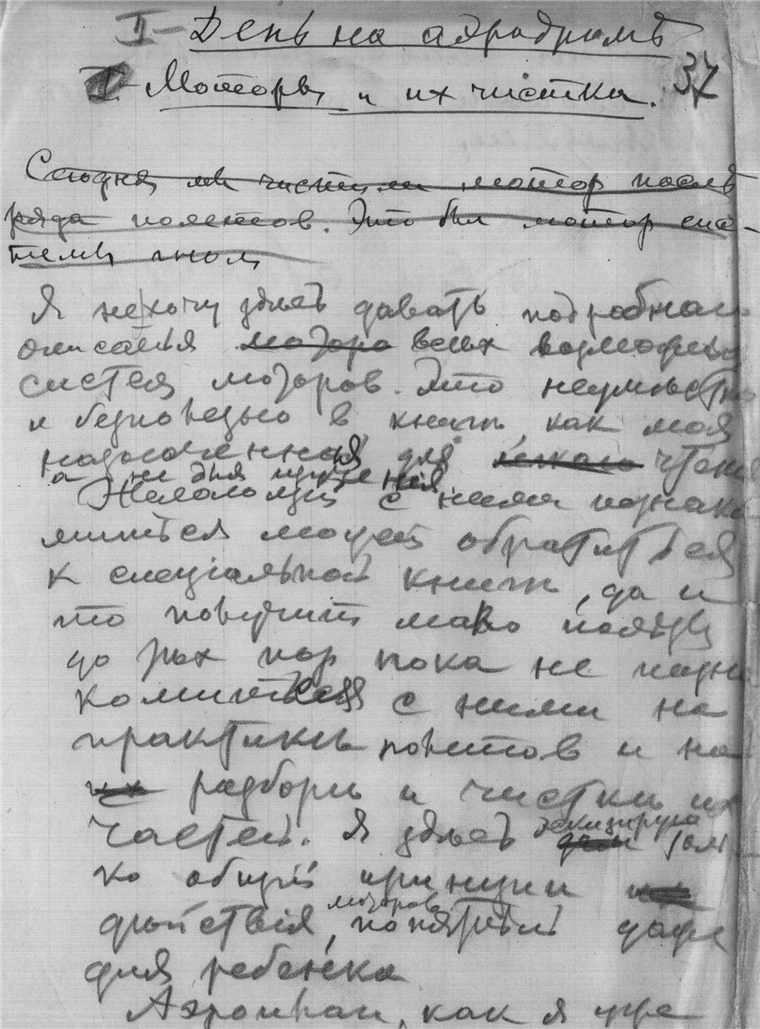 II – День на аэродромѣ
I – Моторы и их чистка. 37
Сегодня мы чистили мотор послѣ
ряда полетов. Это был мотор сис-
темы гном
Я не хочу здѣсь давать подробнаго
описанія мотора всѣх возможных
систем моторов. Это неумѣстно
и безполезно в книгѣ, как моя
назначенная для легкаго чтенія
а не для изученія
Желающій с ними познако
миться может обратиться
к спеціальной книгѣ, да и
то получит мало пользы
до тѣх пор пока не позна
комиться с ними на
практикѣ полетов и на
их разборѣ и чисткѣ их
частей. Я здѣсь эскизирую толь
ко общій принцип
дѣйствія моторов, понятный даже
для ребенка
Аэроплан, как я уже